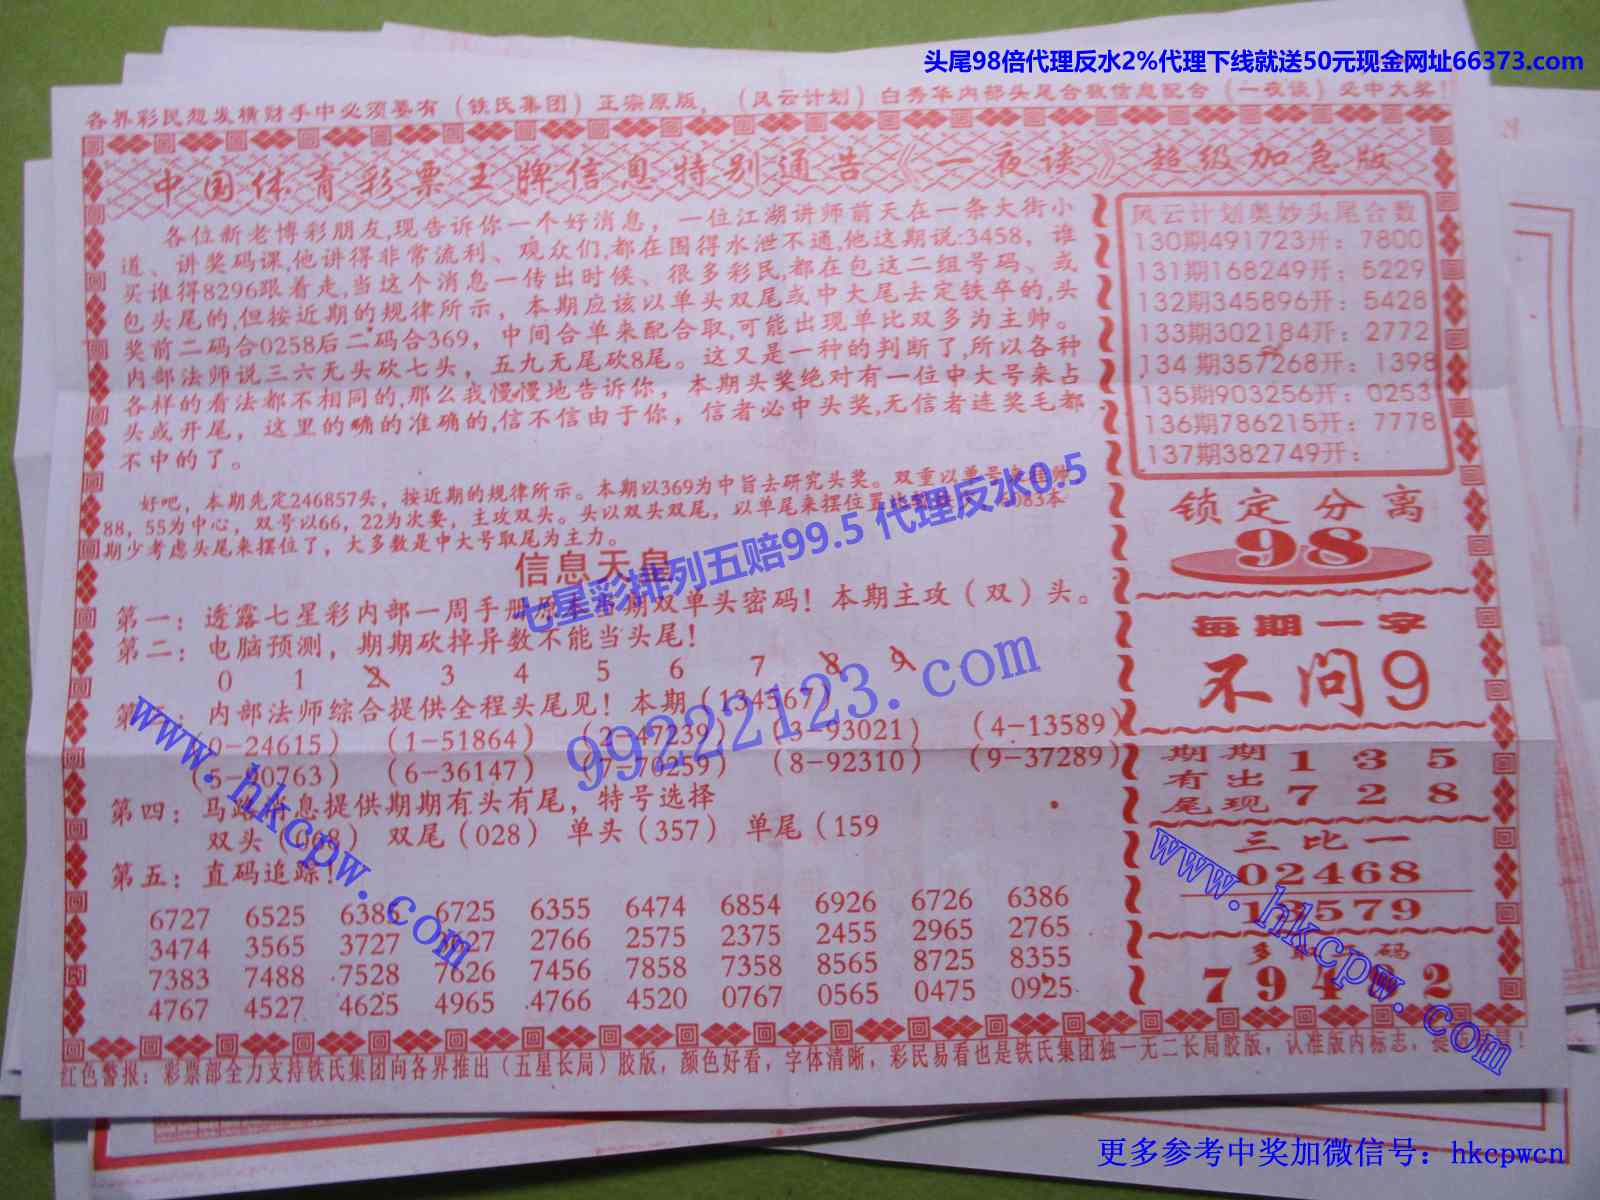 头尾98倍代理反水2%代理下线就送50元现金网址66373.com
各界彩民想发横财手中必须要有（铁氏集团）正宗原版，（风云计划）白秀华内部头尾合数信息配合（一夜谈）必中大奖！
中国体育彩票王牌信息特别通告《一夜读》超级加急版
各位新老博彩朋友,现告诉你一个好消息，一位江湖讲师前天在一条大街小
道、讲奖码课,他讲得非常流利、观众们,都在围得水泄不通,他这期说:3458，谁
买谁得8296跟着走,当这个消息一传出时候、很多彩民,都在包这二组号码、或
包头尾的,但按近期的规律所示，本期应该以单头双尾或中大尾去定铁卒的,头
奖前二码合0258后二码合369，中间合单来配合取,可能出现单比双多为主帅。
内部法师说三六无头砍七头，五九无尾砍8尾。这又是一种的判断了,所以各种
各样的看法都不相同的,那么我慢慢地告诉你，本期头奖绝对有一位中大号来占
头或开尾，这里的确的准确的,信不信由于你，信者必中头奖,无信者连奖毛都
不中的了。
好吧，本期先定246857头，按近期的规律所示。本期以369为中旨去研究头奖。双重以单号
88，55为中心，双号以66，22为次要，主攻双头。头以双头双尾，以单尾来摆位置 083本
期少考虑头尾来摆位了，大多数是中大号取尾为主力。
信息天皇
七星彩排列五赔99.5 代理反水0.5
第一：透露七星彩内部一周手册 期双单头密码！本期主攻（双）头。
第二：电脑预测，期期砍掉异数不能当头尾！
0 1 2 3 4 5 6 7 8 9
内部法师综合提供全程头尾见！本期（134567）
(0-24615) (1-51864) (2-47239) (3-93021) (4-13589)
(5-90763) (6-36147) (7-70259) (8-92310) (9-37289)
99222123.com
www.hkcpw.com
第四：马路消息提供期期有头有尾，特号选择
双头（068） 双尾（028） 单头（357） 单尾（159
第五：直码追踪！
6727 6525 6385 6725 6355 6474 6854 6926 6726 6386
3474 3565 3727 3627 2766 2575 2375 2455 2965 2765
7383 7488 7528 7626 7456 7858 7358 8565 8725 8355
4767 4527 4625 4965 4766 4520 0767 0565 0475 0925
风云计划奥妙头尾合数
130期491723开：7800
131期168249开：5229
132期345896开：5428
133期302184开：2772
134期357268开：1398
135期903256开：0253
136期786215开：7778
137期382749开：
锁定分离
98
每期一字
不问9
期期有出尾现
1 3 5
7 2 8
三比一
02468
13579
www.hkcpw.com
码
红色警报：彩票部全力支持铁氏集团向各界推出（五星长局）胶版，颜色好看，字体清晰，彩民易看也是铁氏集团独一无二长局胶版，认准版内标志，
更多参考中奖加微信号：hkcpwcn